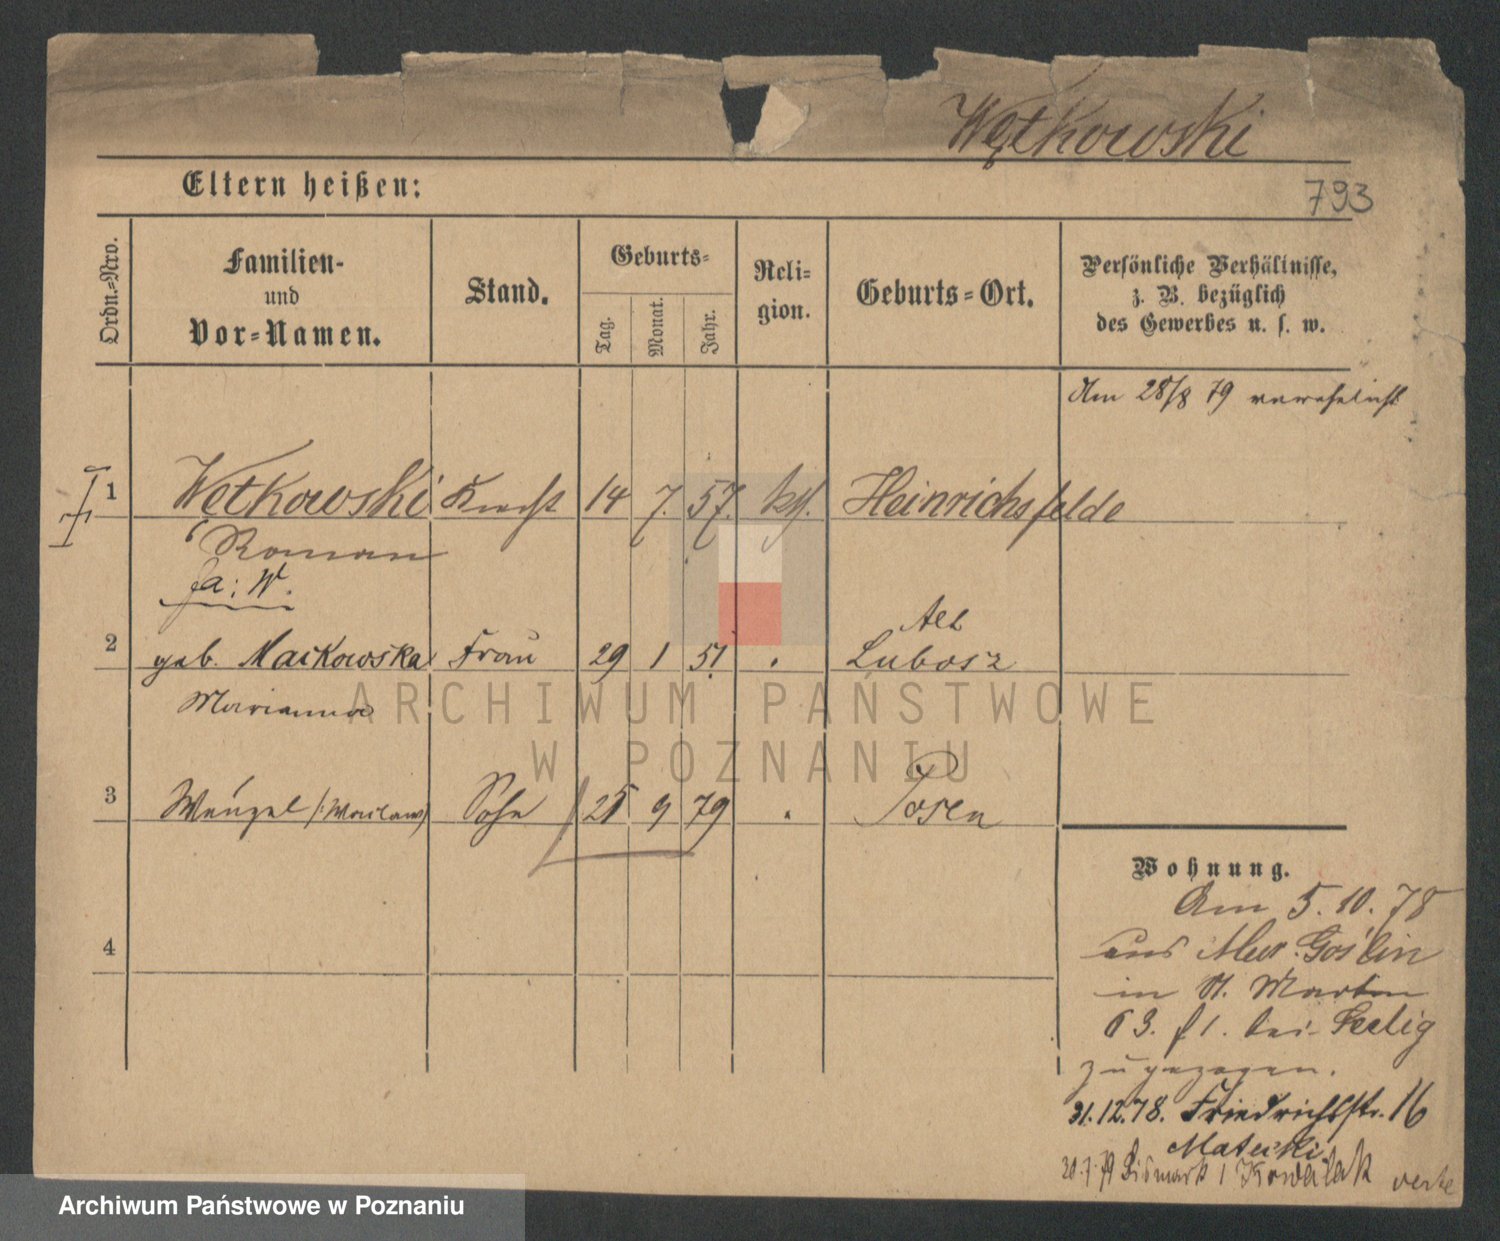 Wętkowski
Eltern heißen:
793
Ordn.=Nro.
Familien-
und
Vor=Namen.
Stand.
Geburts=
Tag.
Monat.
Jahr.
Reli=
gion.
Geburts=Ort.
Persönliche Verhältnisse,
z. B. bezüglich
des Gewerbes u. s. w.
Am 28/8 79 verehelicht
1 Wętkowski Knecht 14 7. 57. kth. Heinrichsfelde
Roman
fa: W.
2 geb. Maćkowska Frau 29 1 51 Alt
Lubosz
Marianna
3 Wenzel /:Wacław/ Sohn 25 9 79 Posen
4
Wohnung.
Am 5.10.78
aus Mur. Goślin
in St. Martin
63. bei Seelig
zugezogen.
31.12.78. Friedrichstr. 16
Matecki
20.7.79 Bismark 1 Kowalak verte
ARCHIWUM PAŃSTWOWE
W POZNANIU
Archiwum Państwowe w Poznaniu